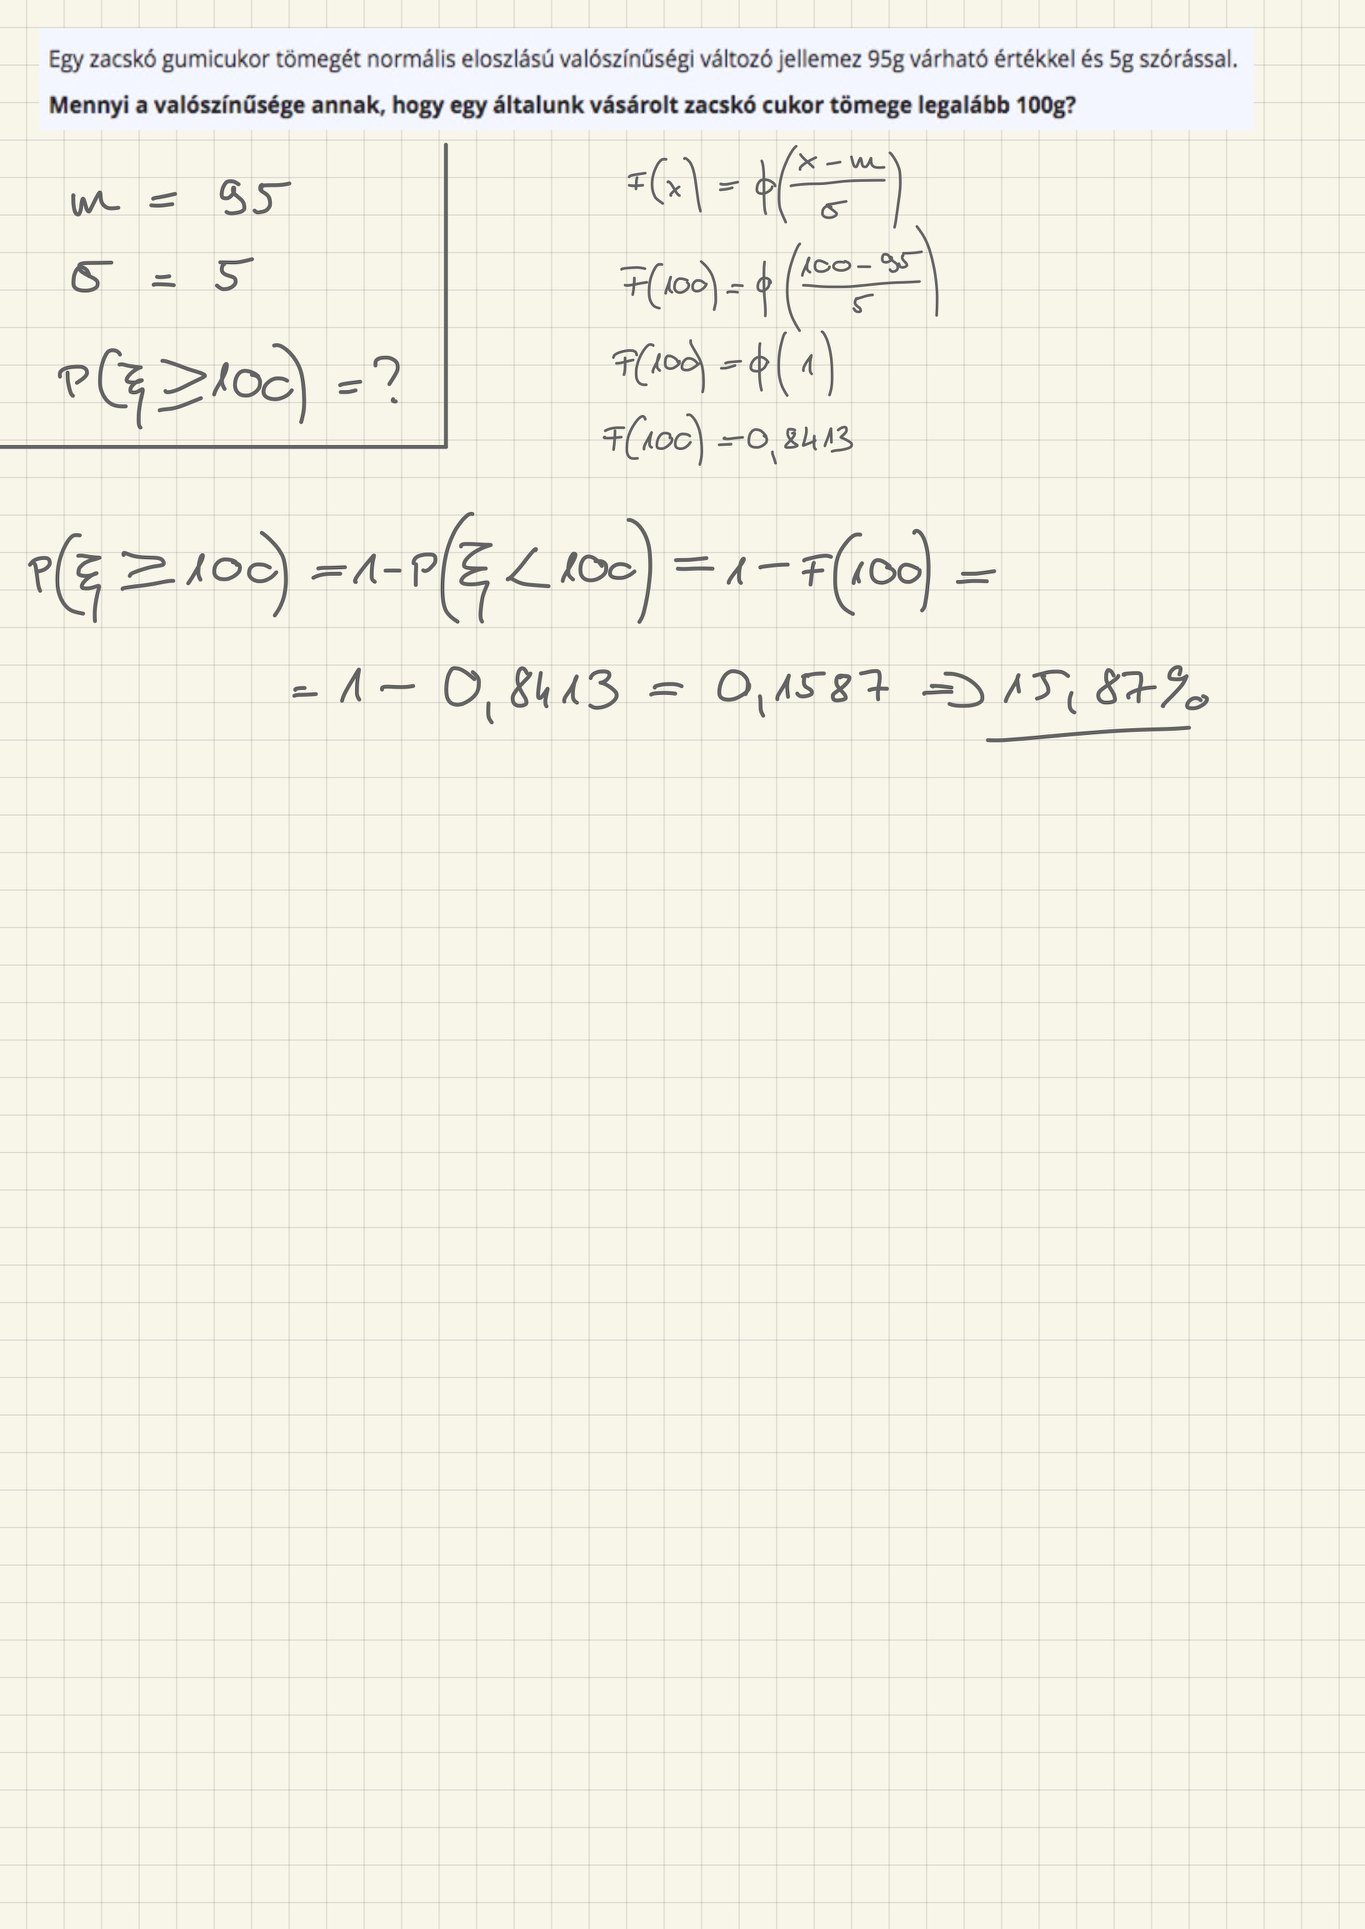 Egy zacskó gumicukor tömegét normális eloszlású valószínűségi változó jellemez 95g várható értékkel és 5g szórással.
Mennyi a valószínűsége annak, hogy egy általunk vásárolt zacskó cukor tömege legalább 100g?
m = 95
σ = 5
P(ξ ≥ 100) = ?
F(x) = ϕ((x - m)/σ)
F(100) = ϕ((100 - 95)/5)
F(100) = ϕ(1)
F(100) = 0,8413
P(ξ ≥ 100) = 1 - P(ξ < 100) = 1 - F(100) =
= 1 - 0,8413 = 0,1587 ⇒ 15,87%